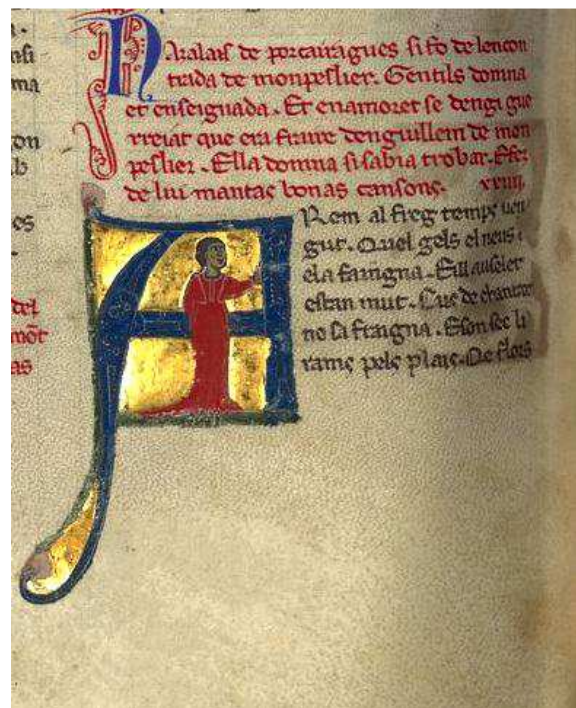 nsi
ma
on
b
es
del
mõt
as
Naralais de porcairagues si fo de lencon
trada de monpeslier. Gentils domna
et enseignada. Et enamoret se dengi gue
rreiat que era fraire denguillem de mon
peslier. Ella domna si sabia trobar. E fez
de lui mantas bonas cansons. xxiiij.
ARem al freg temps uen
gut. Quel gels el neus e
ela faingna. Eill auselet
estan mut. Cus de chantar
no sa fraingna. E son sec li
rams pels plais. Que flors